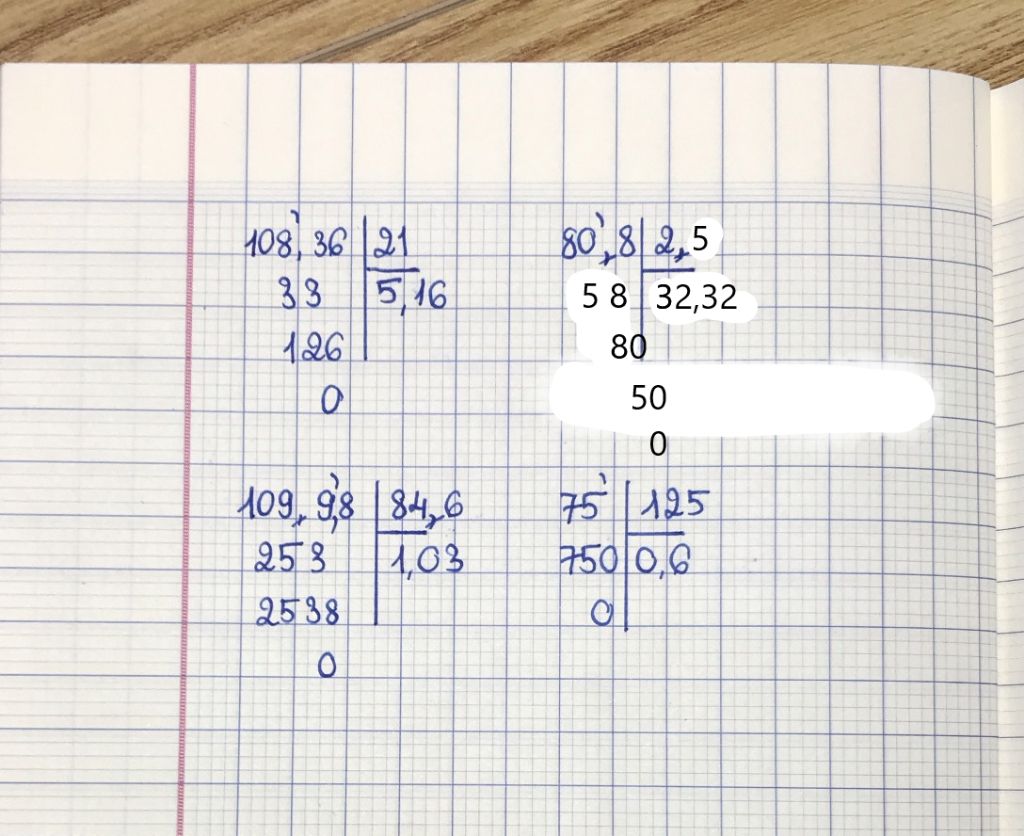 108,36 21
33 5,16
126
0
80,8 2,5
58 32,32
80
50
0
109,9,8 84,6
253 1,03
2538
0
75 125
750 0,6
0